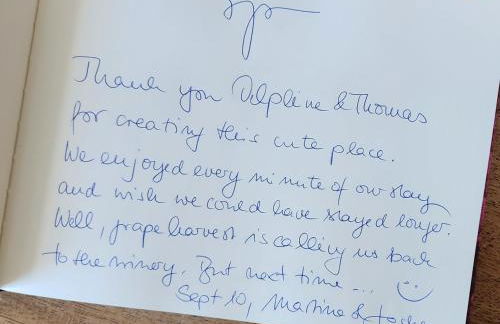 Thank you Delphine & Thomas
for creating this cute place.
We enjoyed every minute of our stay
and wish we could have stayed longer.
Well, grape harvest is calling us back
to the winery. But next time...
Sept 10, Martina &